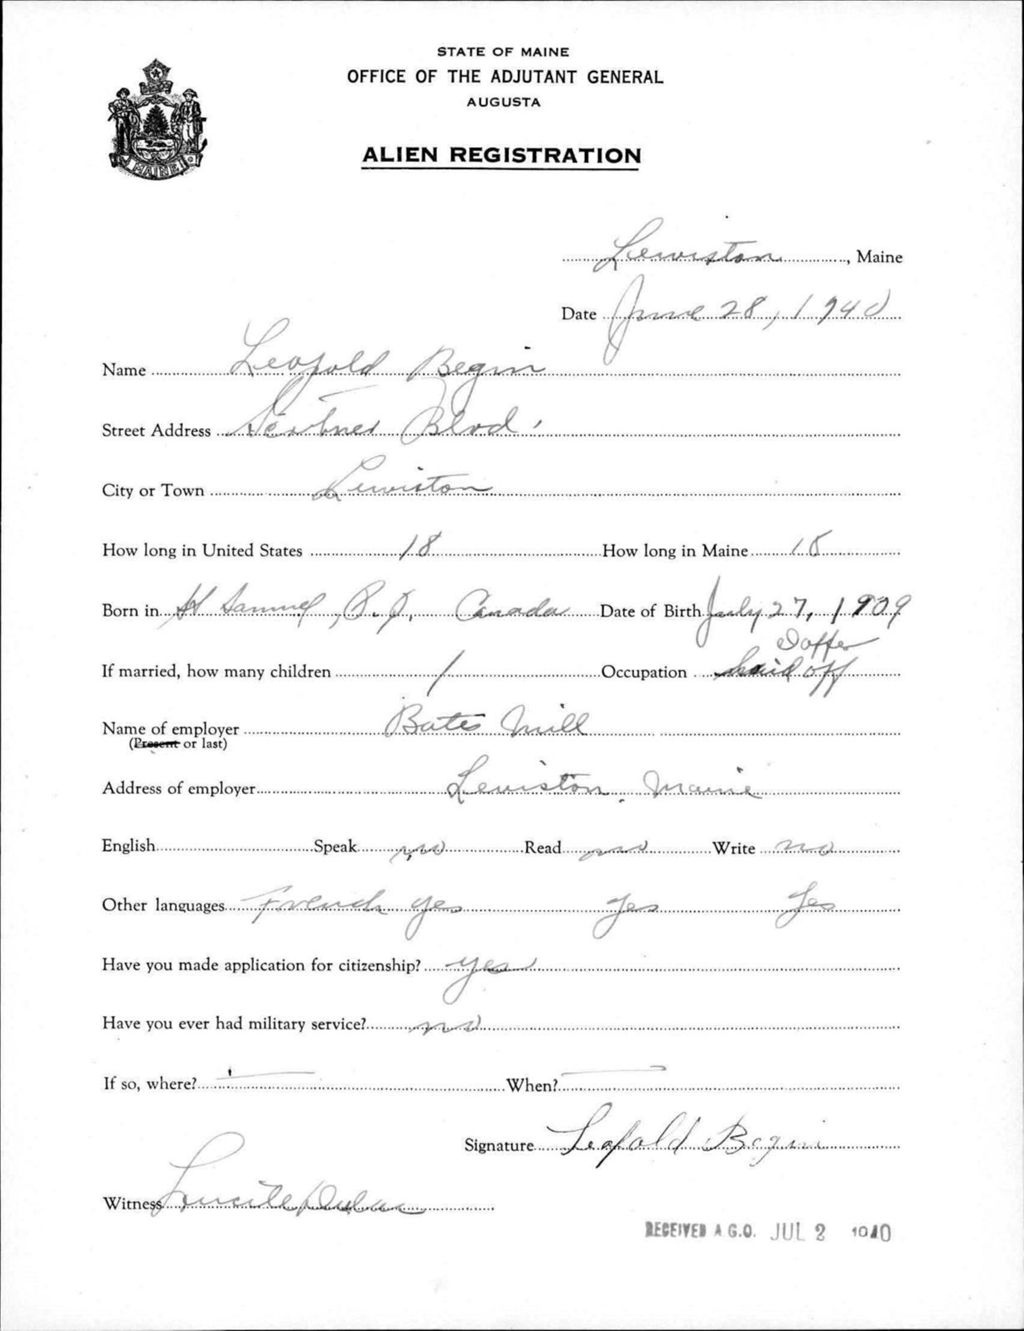 STATE OF MAINE
OFFICE OF THE ADJUTANT GENERAL
AUGUSTA
ALIEN REGISTRATION
MAINE
Lewiston, Maine
Date June 28, 1940
Name Leopold Begin
Street Address Blvd.
City or Town Lewiston
How long in United States 18 How long in Maine 18
Born in St Samuel, P.Q., Canada Date of Birth July 27, 1909
Doffer
If married, how many children 1 Occupation laid off
Name of employer Bates Mill
(Present or last)
Address of employer Lewiston, Maine
English Speak no Read no Write no
Other languages French yes yes yes
Have you made application for citizenship? yes
Have you ever had military service? no
If so, where? — When? —
Signature Leopold Begin
Witness Lucille Dulac
RECEIVED A.G.O. JUL 2 1940